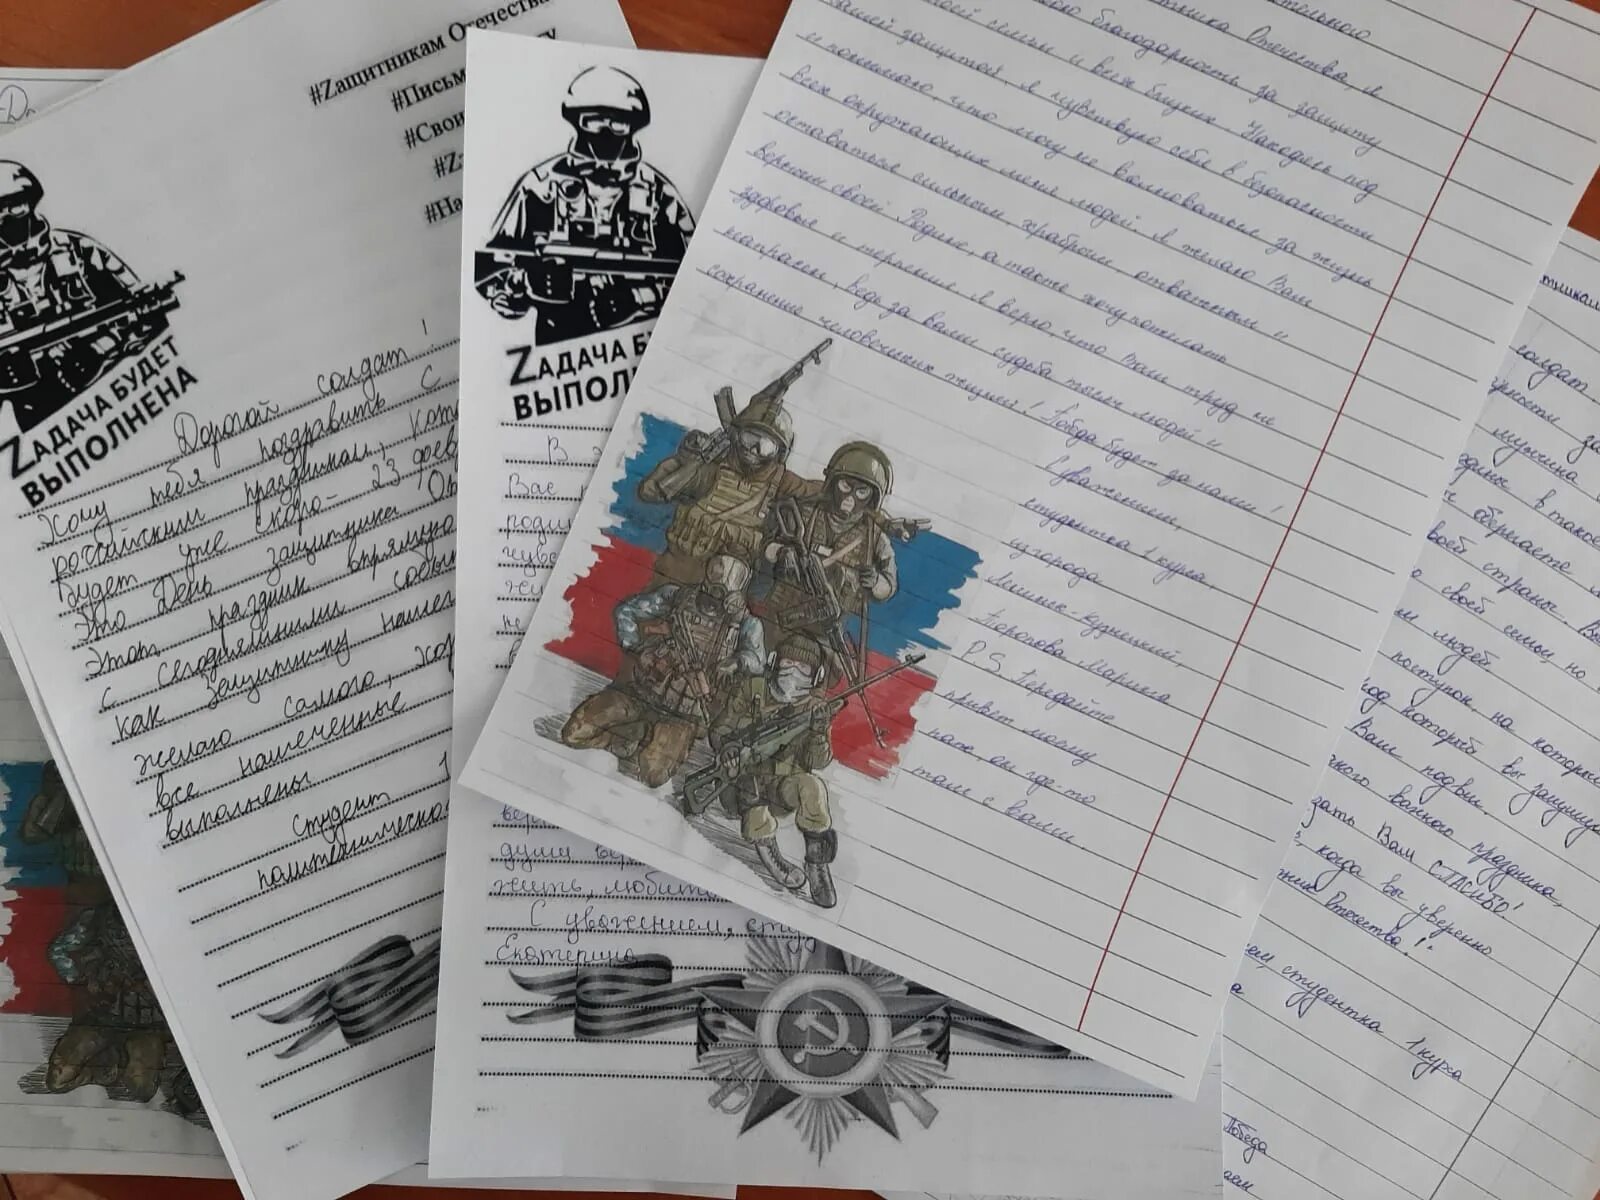 #Zащитникам Отечества
#Письм
#Свои
#Z
#На
ZАДАЧА БУДЕТ
ВЫПОЛНЕНА
Дорогой солдат!
Хочу тебя поздравить с
российским праздником, кот
будет уже скоро - 23 фев
Это День защитника От
Этот праздник впрямую
с сегодняшними событ
как защитнику нашег
желаю самого, хор
все намеченные
выполнены
студент 1
политехническо
ZАДАЧА Б
ВЫПОЛ
В
Вас
роди
жи
не
вер
души вер
жить, любить
С уважением, студ
Екатерина
благодарность за защиту
семьи и всех близких. Находясь под
вашей защитой, я чувствую себя в безопасности
и понимаю, что могу не волноваться за жизнь
всех окружающих меня людей. Я желаю Вам
оставаться сильным, храбрым, отважным и
верным своей Родине, а также хочу пожелать
здоровья и терпения. Я верю, что Ваш труд не
напрасен, ведь за вами судьба тысяч людей и
сохранение человеческих жизней! Победа будет за нами!
С уважением,
студентка 1 курса,
из города
Ленинск-Кузнецкий,
Торопова Марина
P.S. Передайте
привет моему
папе, он где-то
там с вами.
солдат.
мужчина
оберегаете
своей страны. В
своей семьи, но
людей
поступок, на котор
который вы защищ
Ваш подвиг.
важного праздника,
зать Вам СПАСИБО!
, когда вы уверенно
Отечества!"
ем, студентка 1 курса
а
Победа
аем